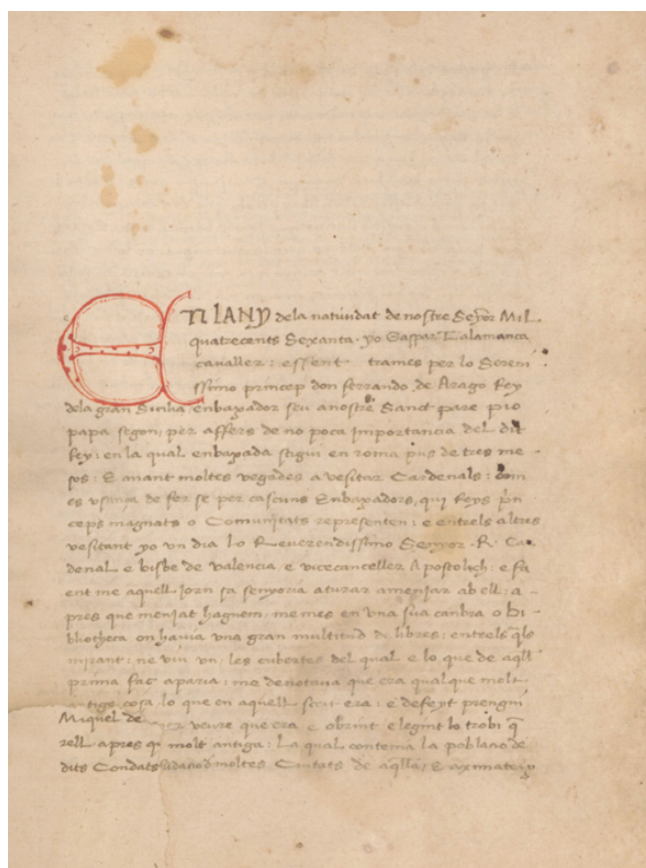 EN LANY dela natiuidat de nostre Senyor Mil
quatrecents Sexanta. yo Gaspar Talamanca
cavaller: essent trames per lo Sereni
ssimo princep don ferrando de Arago Rey
dela gran Sicilia enbaxador seu a nostre Sanct pare pio
papa segon, per affers de no poca importancia del dit
Rey: en la qual enbaxada stigui en roma pus de tres me
sos: E anant moltes vegades a vesitar Cardenals: com
es vsança de fer se per cascuns Enbaxadors, qui Reys prin
ceps magnats o Comunitats representen: e entrels altres
vesitant yo vn dia lo Reverendissimo Senyor .R. Car
denal e bisbe de valencia, e vicecanceller Apostolich: e fa
ent me aquell jorn sa senyoria aturar a menjar ab ell: a
pres que menjat haguem, me mes en vna sua canbra o bi-
bliotheca on hauia vna gran multitud de libres: entrels qls
mirant: ne viu vn: les cubertes del qual e lo que de aqll
prima faç aparia: me denotaua que era qualque molt
antiga cosa lo que en aquell scrit era: e defeyt prengui
Miquel de veure que era e obrint e legint lo trobi q
rell apres q molt antiga: La qual contenia la poblacio de
dits Condats moltes Ciutats de aqlla, E axi mateix